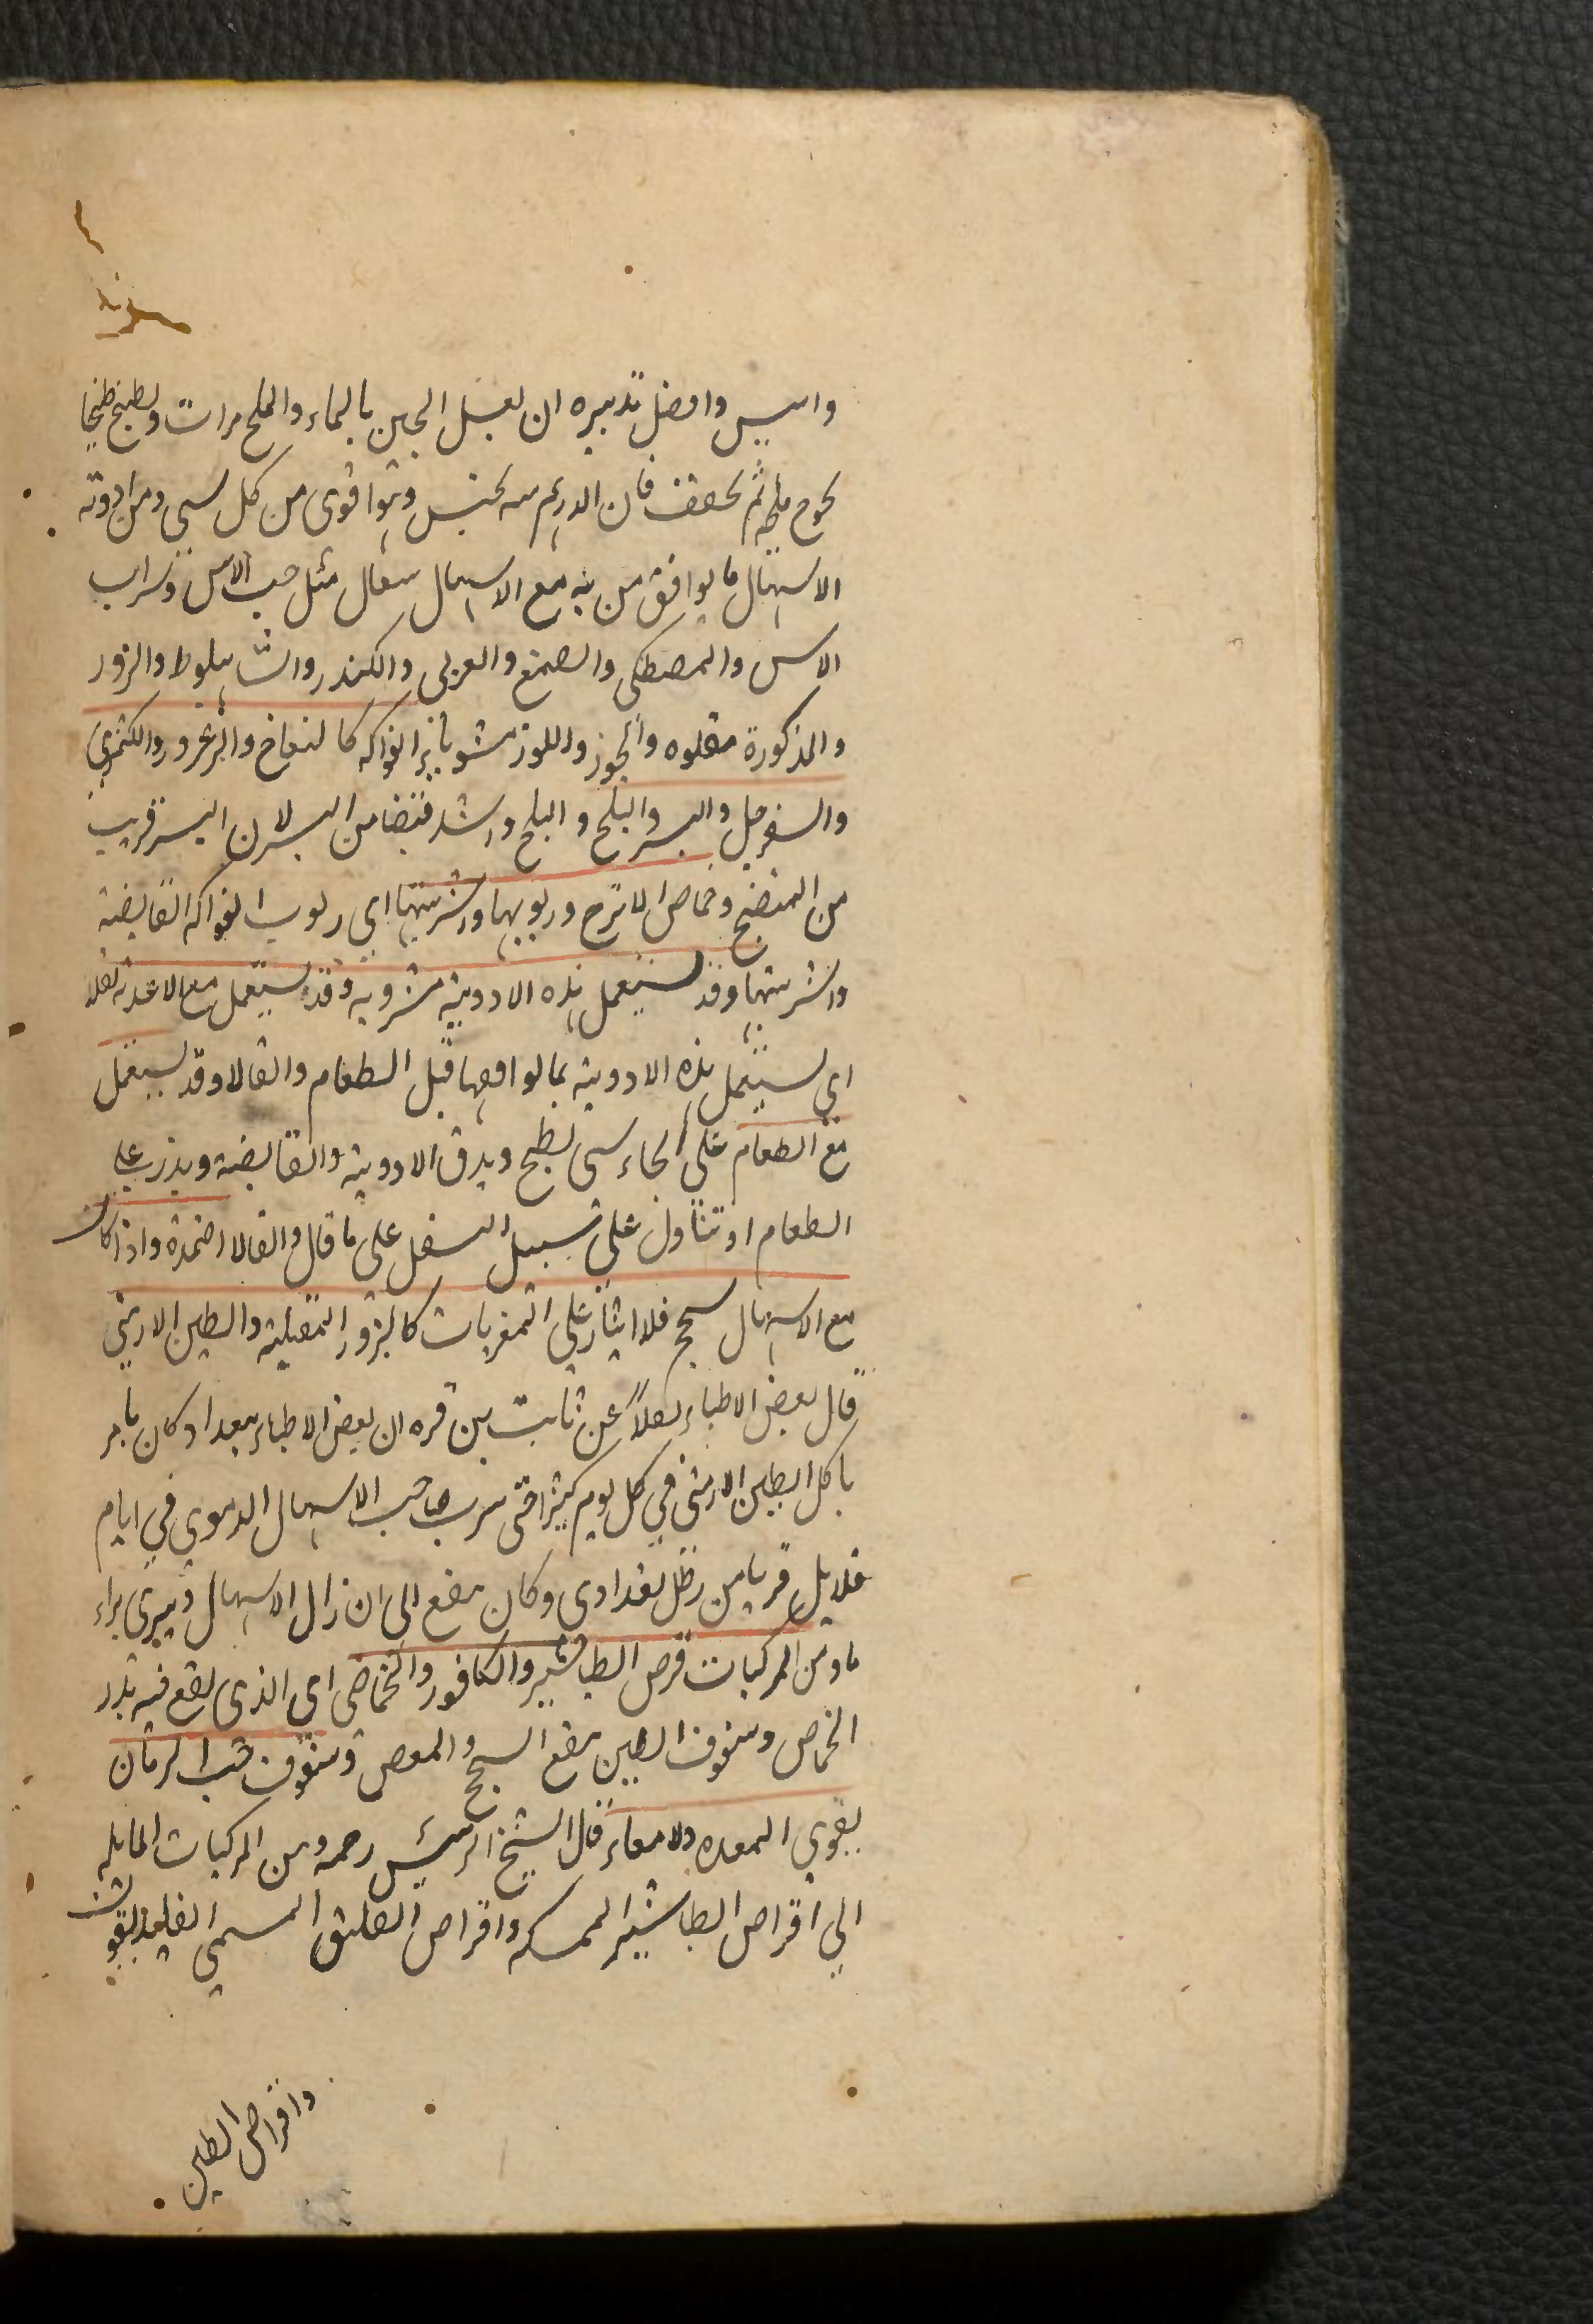 وايبس وافضل تدبيره ان يغسل الجبن بالماء والملح مرات ويطبخ طبخا
يخرج ملحه ثم يجفف فان الدرهم منه يحبس وهو اقوى من كل شى ومن ادوية
الاسهال ما يوافق من به مع الاسهال سعال مثل حب الآس وشراب
الاس والمصطكى والصمغ والعربى والكندر والشاهبلوط والبزور
والمذكورة مقلوه والجوز واللوز مشويا بزر الفواكه كالتفاح والزعرور والكمثرى
والسفرجل والبسر والبلح و البلح واشد قبضا من البسر لان البسر قريب
من النضج وحماض الاترج وربوبها واشربتها اى ربوب الفواكه القابضة
واشربتها وقد يستعمل هذه الادوية مشروبه وقد يستعمل مع الاغذية نقلا
اى يستعمل هذه الادوية بما يوافقها قبل الطعام وانتقالا وقد يستعمل
مع الطعام على انحاء شتى يطبخ ويدق الادوية والقابضة ويذر على
الطعام او تتناول على سبيل النقل على ما قال وانتقالا اضمدة واذا كان
مع الاسهال سحج فلا ايثار على المغريات كالبزور المقلية والطين الارمنى
قال بعض الاطباء نقلاً عن ثابت بن قره ان بعض الاطباء ببغداد كان يامر
باكل الطين الارمنى فى كل يوم كثيرا حتى شرب صاحب الاسهال الدموى فى ايام
قلايل قريبا من رطل بغدادى وكان ينفع الى ان زال الاسهال ويبرى براء
تاما ومن المركبات قرص الطباشير والكافور والحماض اى الذى يقع فيه بذر
الحماض وسفوف الطين ينفع السحج والمغص وسفوف حب الرمان
يقوى المعده والامعاء قال الشيخ الرئيس رحمه ومن المركبات المايله
الى اقراص الطباشير الممسكه واقراص الفليق المسمى
واقراص الطين